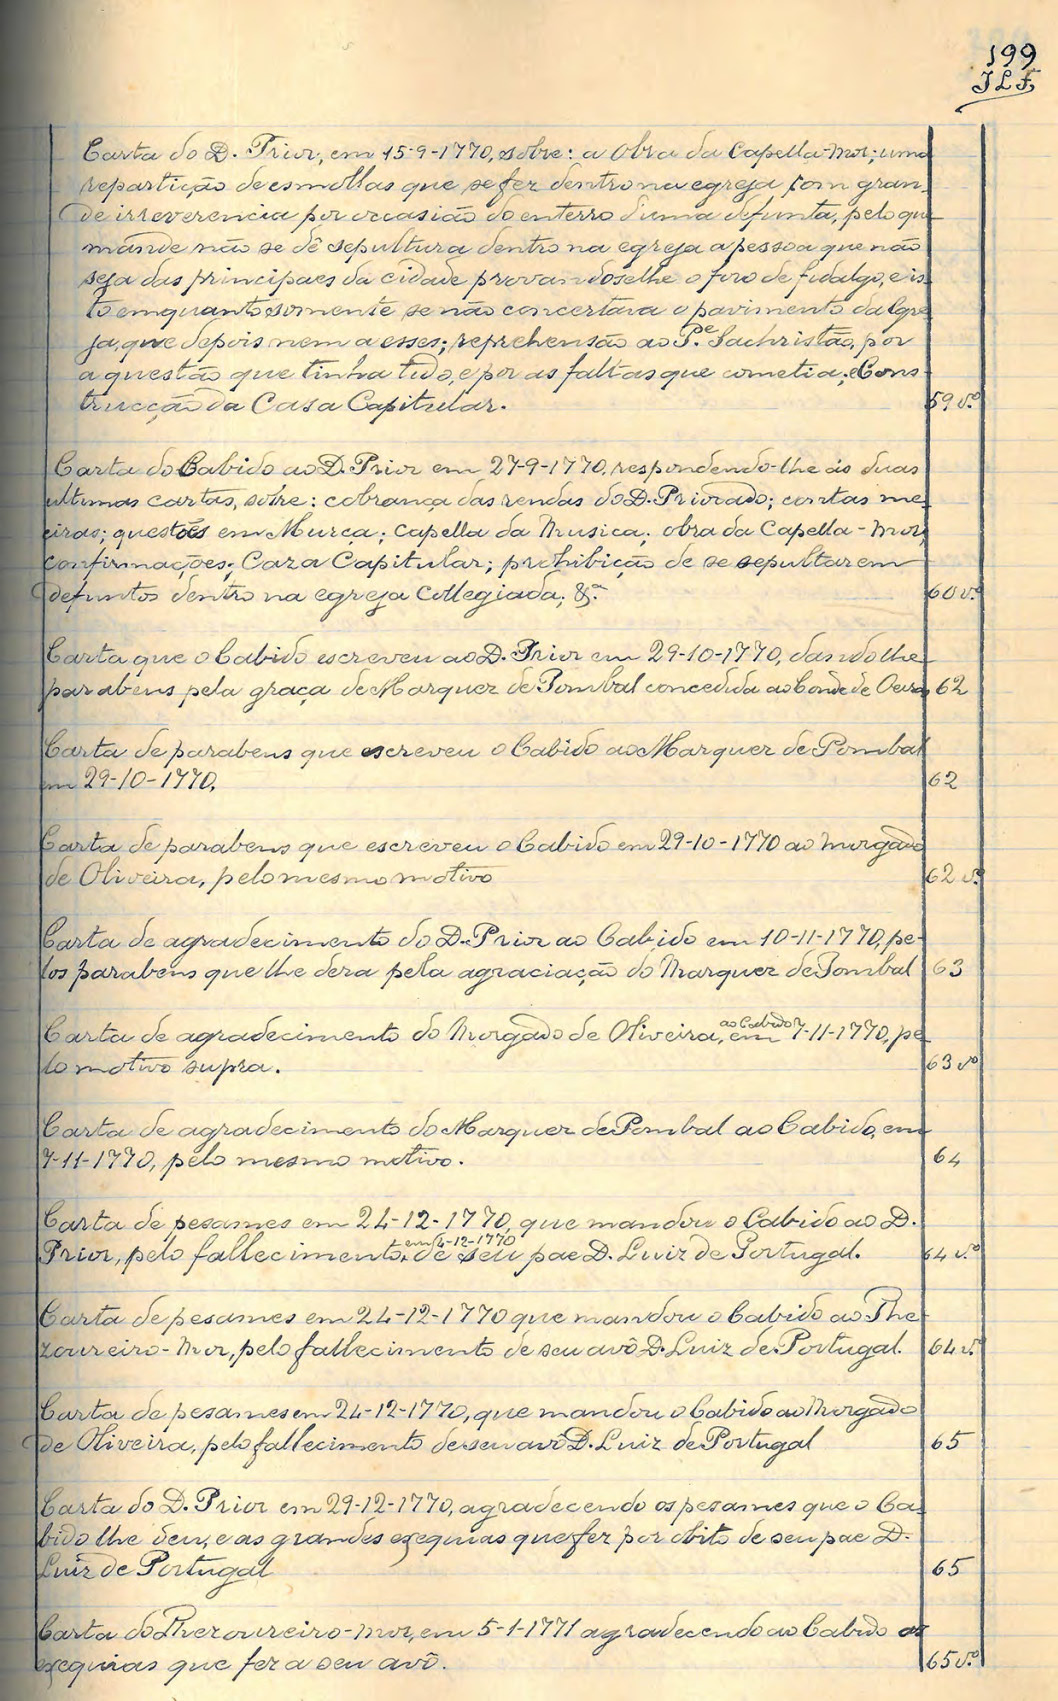 199
J L F,
Carta do D. Prior, em 15-9-1770, sobre: a obra da Capella-Mor; uma
repartição de esmollas que se fez dentro na egreja com gran-
de irreverencia por occasião do enterro d'uma defunta, pelo que
mande não se dê sepultura dentro na egreja a pessoa que não
seja das principaes da cidade provandoselhe o foro de fidalgo, e is-
to emquanto somente se não concertava o pavimento da Egre-
ja, que depois nem a esses; reprehensão ao P.e Sachristão, por
a questão que tinha tido, e por as faltas que cometia; e Cons-
trucção da Casa Capitular. 59 v.º
Carta do Cabido ao D. Prior em 27-9-1770, respondendo-lhe ás duas
ultimas cartas, sobre: cobrança das rendas do D. Priorado; contas me-
eiras; questões em Murça; capella da Musica; obra da Capella-Mor;
confirmações; Caza Capitular; prohibição de se sepultarem
defuntos dentro na egreja Collegiada; &.ª 60 v.º
Carta que o Cabido escreveu ao D. Prior em 29-10-1770, dandolhe
parabens pela graça de Marquez de Pombal concedida ao Conde de Oeiras 62
Carta de parabens que escreveu o Cabido ao Marquez de Pombal
em 29-10-1770. 62
Carta de parabens que escreveu o Cabido em 29-10-1770 ao Morgado
de Oliveira, pelo mesmo motivo 62 v.º
Carta de agradecimento do D. Prior ao Cabido em 10-11-1770, pe-
los parabens que lhe dera pela agraciação do Marquez de Pombal 63
Carta de agradecimento do Morgado de Oliveira, ao Cabido em 7-11-1770, pe-
lo motivo supra. 63 v.º
Carta de agradecimento do Marquez de Pombal ao Cabido, em
7-11-1770, pelo mesmo motivo. 64
Carta de pesames em 24-12-1770, que mandou o Cabido ao D.
Prior, pelo fallecimento, em 4-12-1770 de seu pae D. Luiz de Portugal. 64 v.º
Carta de pesames em 24-12-1770 que mandou o Cabido ao The-
zoureiro-Mor, pelo fallecimento de seu avô D. Luiz de Portugal. 64 v.º
Carta de pesames em 24-12-1770, que mandou o Cabido ao Morgado
de Oliveira, pelo fallecimento de seu avô D. Luiz de Portugal 65
Carta do D. Prior em 29-12-1770, agradecendo os pesames que o Ca-
bido lhe deu, e as grandes exequias que fez por obito de seu pae D.
Luiz de Portugal 65
Carta do Thezoureiro-Mor, em 5-1-1771 agradecendo ao Cabido as
exequias que fez a seu avô. 65 v.º